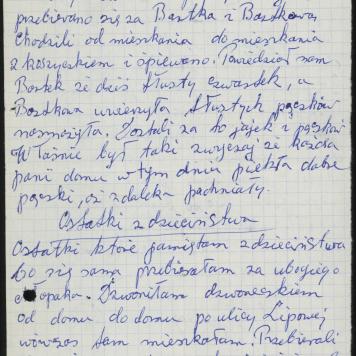 przebierano się za Bartka i Bartkową
Chodzili od mieszkania do mieszkania
z koszyczkiem i śpiewano. Powiedział nam
Bartek że dziś tłusty czwartek, a
Bartkowa uwierzyła tłustych pączków
nasmażyła. Dostali za to jajek i pączków
Właśnie był taki zwyczaj że każda
pani domu w tym dniu piekła dobre
pączki, aż z daleka pachniały.
Ostatki z dzieciństwa
Ostatki które pamiętam z dzieciństwa
to się sama przebierałam za ubogiego
chłopaka. Dzwoniłam dzwoneczkiem
od domu do domu po ulicy Lipowej
wówczas tam mieszkałam. Przebierali